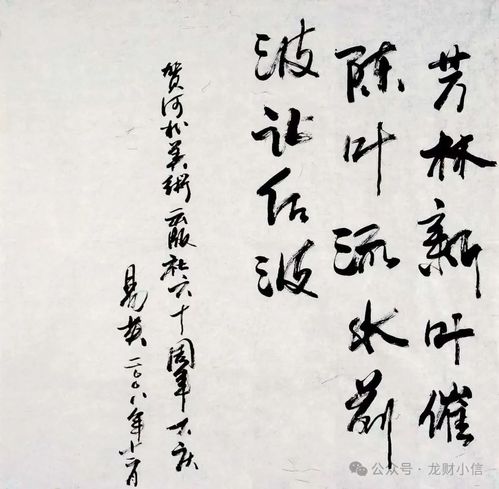 芳林新叶催
陈叶流水前
波让后波
贺河北美術出版社六十周年大庆
易英二〇〇八年十月
公众号·龙财小信